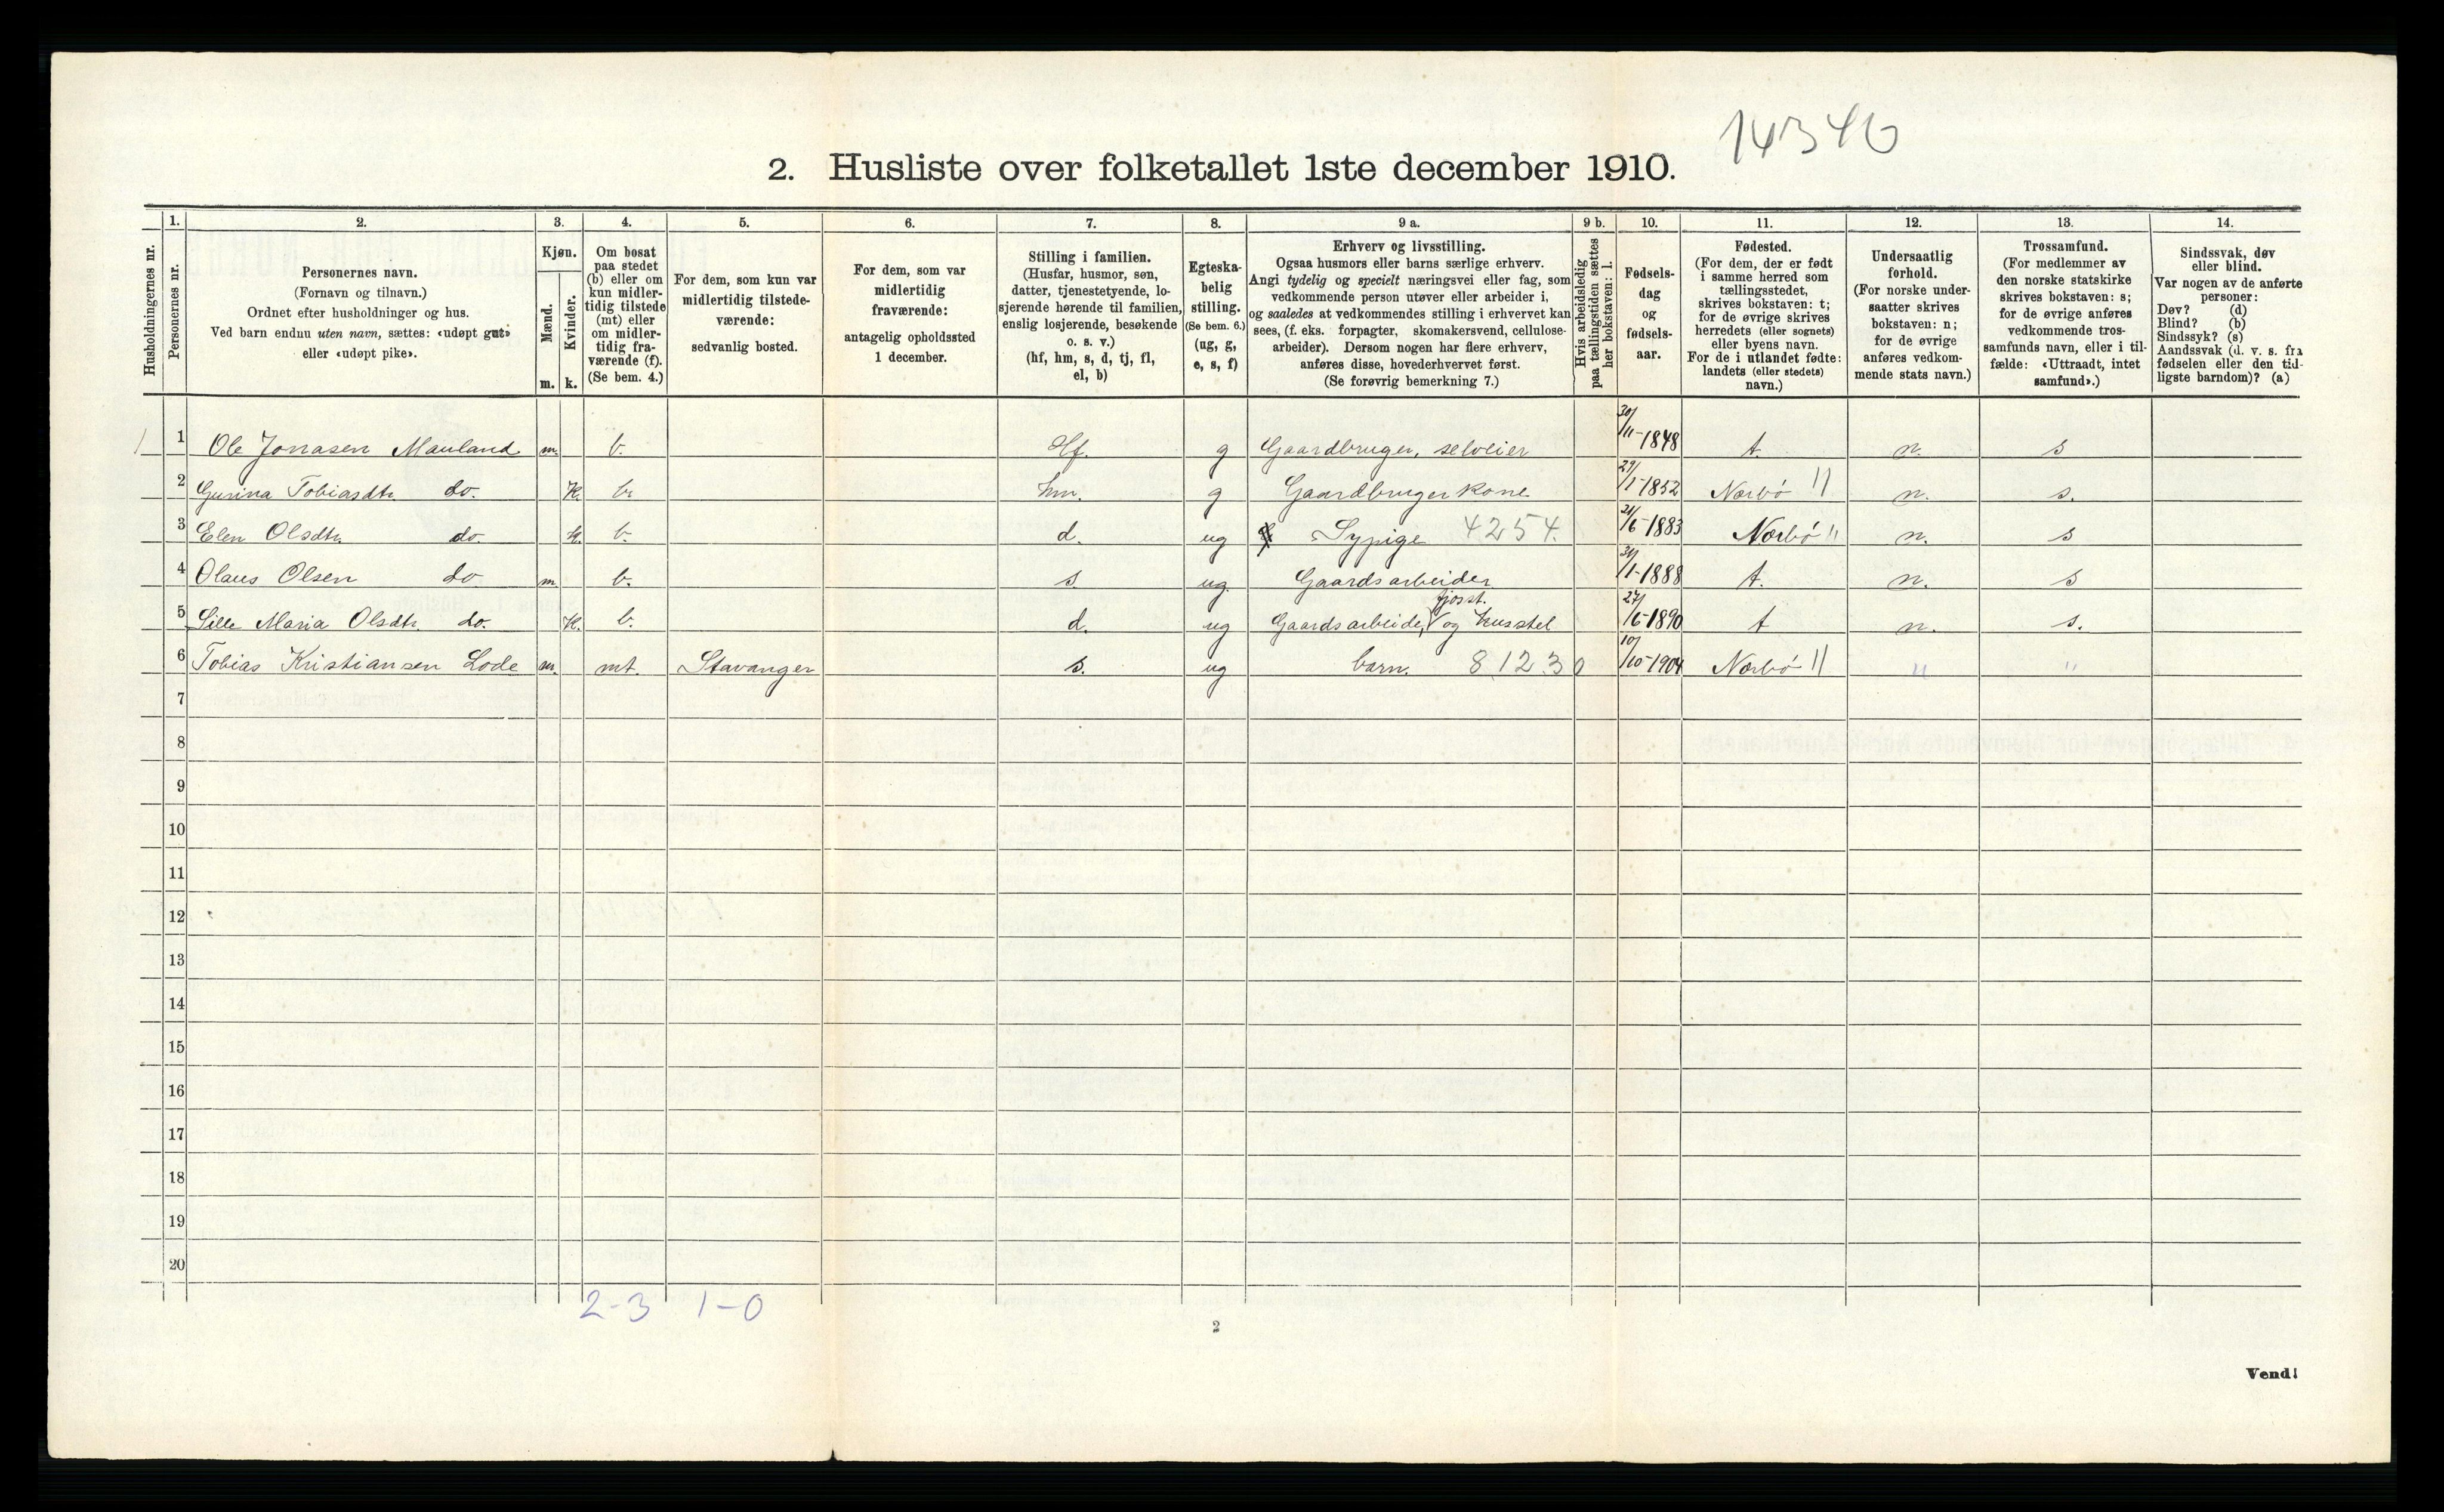 14340
2. Husliste over folketallet 1ste december 1910.
Husholdningernes nr.
1. Personernes nr.
2. Personernes navn. (Fornavn og tilnavn.) Ordnet efter husholdninger og hus. Ved barn endnu uten navn, sættes: «udøpt gut» eller «udøpt pike».
3. Kjøn. Mænd. m. Kvinder. k.
4. Om bosat paa stedet (b) eller om kun midler-tidig tilstede (mt) eller om midler-tidig fra-værende (f). (Se bem. 4.)
5. For dem, som kun var midlertidig tilstede-værende: sedvanlig bosted.
6. For dem, som var midlertidig fraværende: antagelig opholdssted 1 december.
7. Stilling i familien. (Husfar, husmor, søn, datter, tjenestetyende, lo-sjerende hørende til familien, enslig losjerende, besøkende o. s. v.) (hf, hm, s, d, tj, fl, el, b)
8. Egteska-belig stilling. (Se bem. 6.) (ug, g, e, s, f)
9 a. Erhverv og livsstilling. Ogsaa husmors eller barns særlige erhverv. Angi tydelig og specielt næringsvei eller fag, som vedkommende person utøver eller arbeider i, og saaledes at vedkommendes stilling i erhvervet kan sees, (f. eks. forpagter, skomakersvend, cellulose-arbeider). Dersom nogen har flere erhverv, anføres disse, hovederhvervet først. (Se forøvrig bemerkning 7.)
9 b. Hvis arbeidsledig paa tællingstiden sættes her bokstaven: l.
10. Fødsels-dag og fødsels-aar.
11. Fødested. (For dem, der er født i samme herred som tællingsstedet, skrives bokstaven: t; for de øvrige skrives herredets (eller sognets) eller byens navn. For de i utlandet fødte: landets (eller stedets) navn.)
12. Undersaatlig forhold. (For norske under-saatter skrives bokstaven: n; for de øvrige anføres vedkom-mende stats navn.)
13. Trossamfund. (For medlemmer av den norske statskirke skrives bokstaven: s; for de øvrige anføres vedkommende tros-samfunds navn, eller i til-fælde: «Uttraadt, intet samfund».)
14. Sindssvak, døv eller blind. Var nogen av de anførte personer: Døv? (d) Blind? (b) Sindssyk? (s) Aandssvak (d. v. s. fra fødselen eller den tid-ligste barndom)? (a)
1 1 Ole Jonasen Mauland m. b. Hf. g Gaardbruger, selveier 30/11-1848 t. n. s
2 Gurina Tobiasdtr. do. K. b. hm. g Gaardbrugerkone 29/1-1852 Nærbø 11 n. s.
3 Elen Olsdtr. do. K. b. d. ug Sypige 4254. 21/6-1883 Nærbø 11 n. s
4 Olaus Olsen do m b. s. ug. Gaardsarbeider 31/1-1888 t. n. s
5 Sille Maria Olsdtr. do. K. b. d. ug Gaardsarbeide, fjøsst. og husstel 27/6-1890 t n. s.
6 Tobias Kristiansen Lode m. mt. Stavanger s. ug barn. 8.123 0 10/10-1904 Nærbø 11 " "
7
8
9
10
11
12
13
14
15
16
17
18
19
20
2-3 1-0
2
Vend!